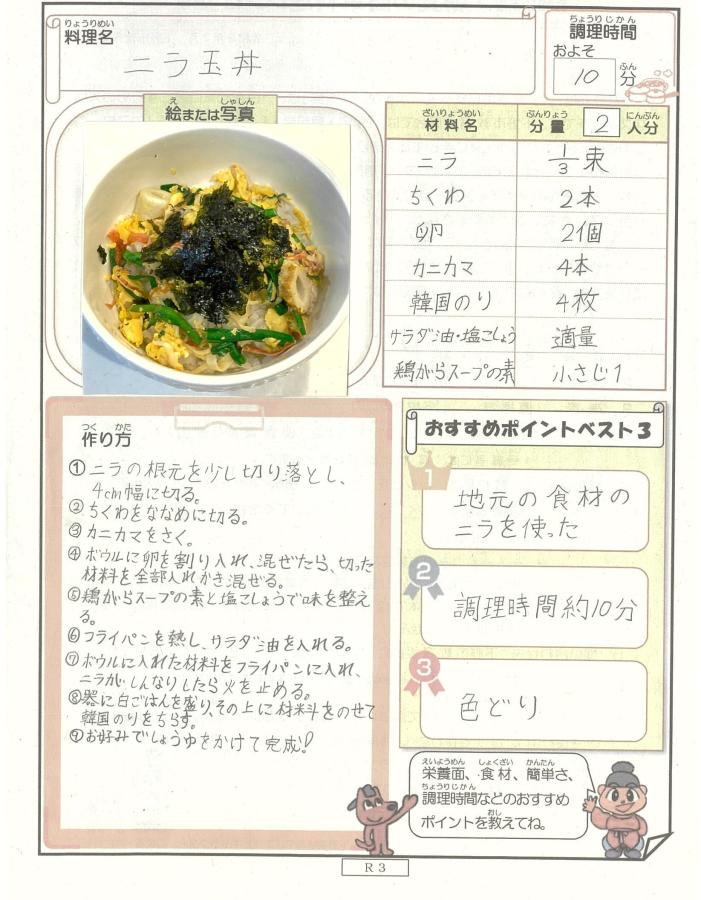 りょうりめい
料理名
ニラ玉丼
ちょうりじかん
調理時間
およそ
10 分
ふん
え しゃしん
絵または写真
ざいりょうめい ぶんりょう にんぶん
材料名 分量 2 人分
ニラ 1/3束
ちくわ 2本
卵 2個
カニカマ 4本
韓国のり 4枚
サラダ油・塩こしょう 適量
鶏がらスープの素 小さじ1
つく かた
作り方
①ニラの根元を少し切り落とし、
4cm幅に切る。
②ちくわをななめに切る。
③カニカマをさく。
④ボウルに卵を割り入れ、混ぜたら、切った
材料を全部入れかき混ぜる。
⑤鶏がらスープの素と塩こしょうで味を整え
る。
⑥フライパンを熱し、サラダ油を入れる。
⑦ボウルに入れた材料をフライパンに入れ、
ニラがしんなりしたら火を止める。
⑧器に白ごはんを盛り、その上に材料をのせて
韓国のりをちらす。
⑨お好みでしょうゆをかけて完成!
おすすめポイントベスト3
1
地元の食材の
ニラを使った
2
調理時間約10分
3
色どり
えいようめん しょくざい かんたん
栄養面、食材、簡単さ、
ちょうりじかん
調理時間などのおすすめ
おし
ポイントを教えてね。
R3